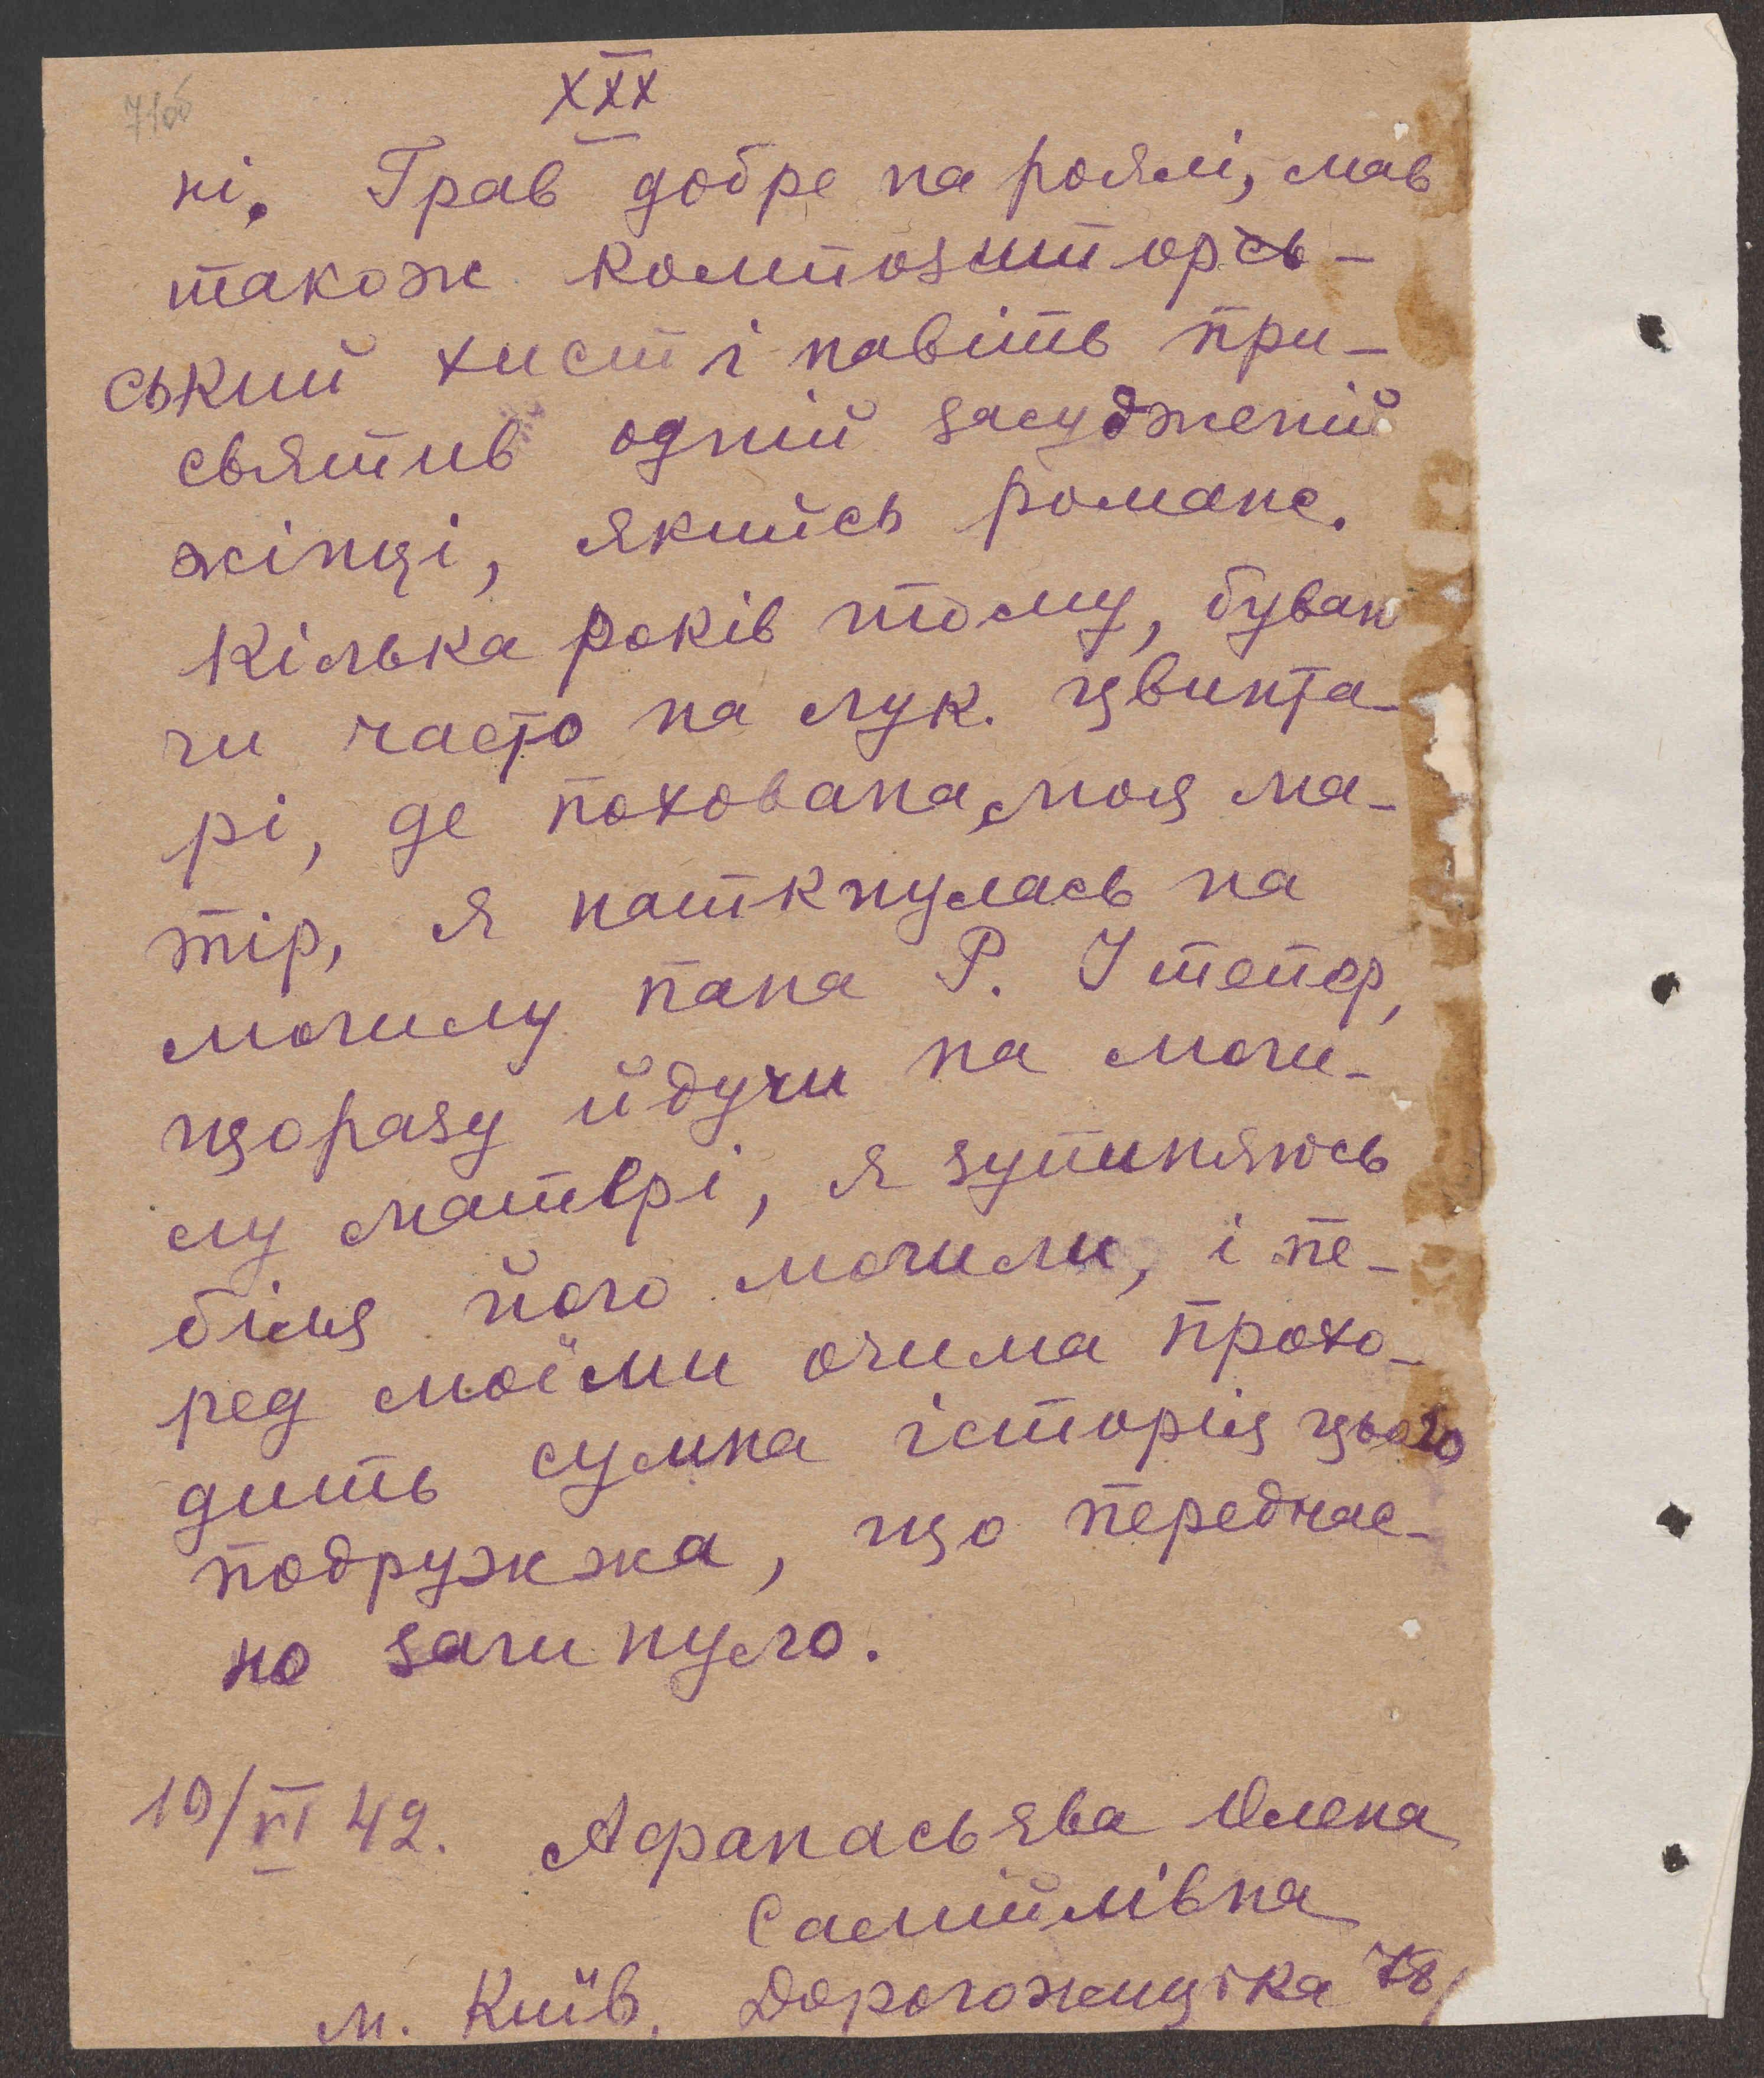 7100
XXX
ні. Грав добре на роялі, мав
також композиторсь-
ський хист і навіть при-
святив одній засудженій
жінці, якийсь романс.
Кілька років тому, буваю
чи часто на лук. цвинта-
рі, де похована, моя ма-
тір, я наткнулась на
могилу пана Р. І тепер,
щоразу йдучи на моги-
лу матері, я зупиняюсь
біля його могили, і пе-
ред моїми очима прохо-
дить сумна історія цього
подружжа, що передчас-
но загинуло.
19/VI 42. Афанасьява Олена
Самійлівна
м. Київ. Дорогожицька 78